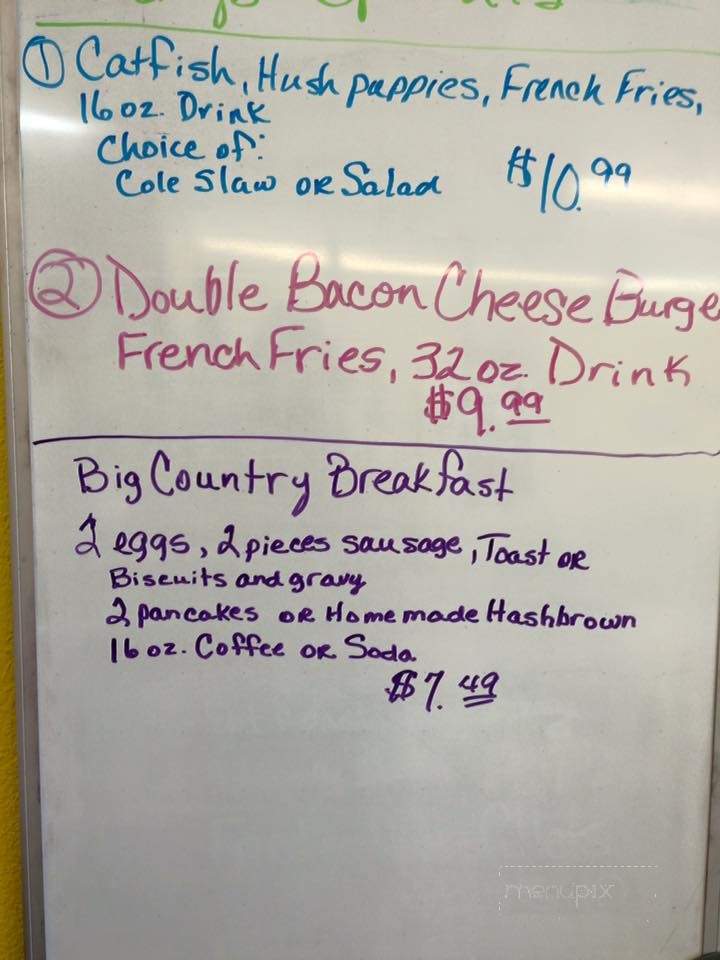 ① Catfish, Hush puppies, French Fries,
16 oz. Drink
Choice of:
Cole Slaw or Salad $10.99
② Double Bacon Cheese Burge
French Fries, 32 oz. Drink
$9.99
Big Country Breakfast
2 eggs, 2 pieces sausage, Toast or
Biscuits and gravy
2 pancakes or Homemade Hashbrown
16 oz. Coffee or Soda
$7.49
menupix